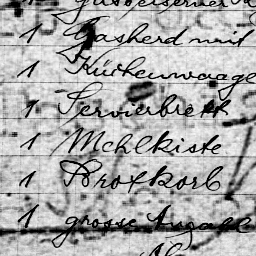 1 Gasherd mit
1 Küchenwaage
1 Servierbrett
1 Mehlkiste
1 Brotkorb
1 grosse Anzahl